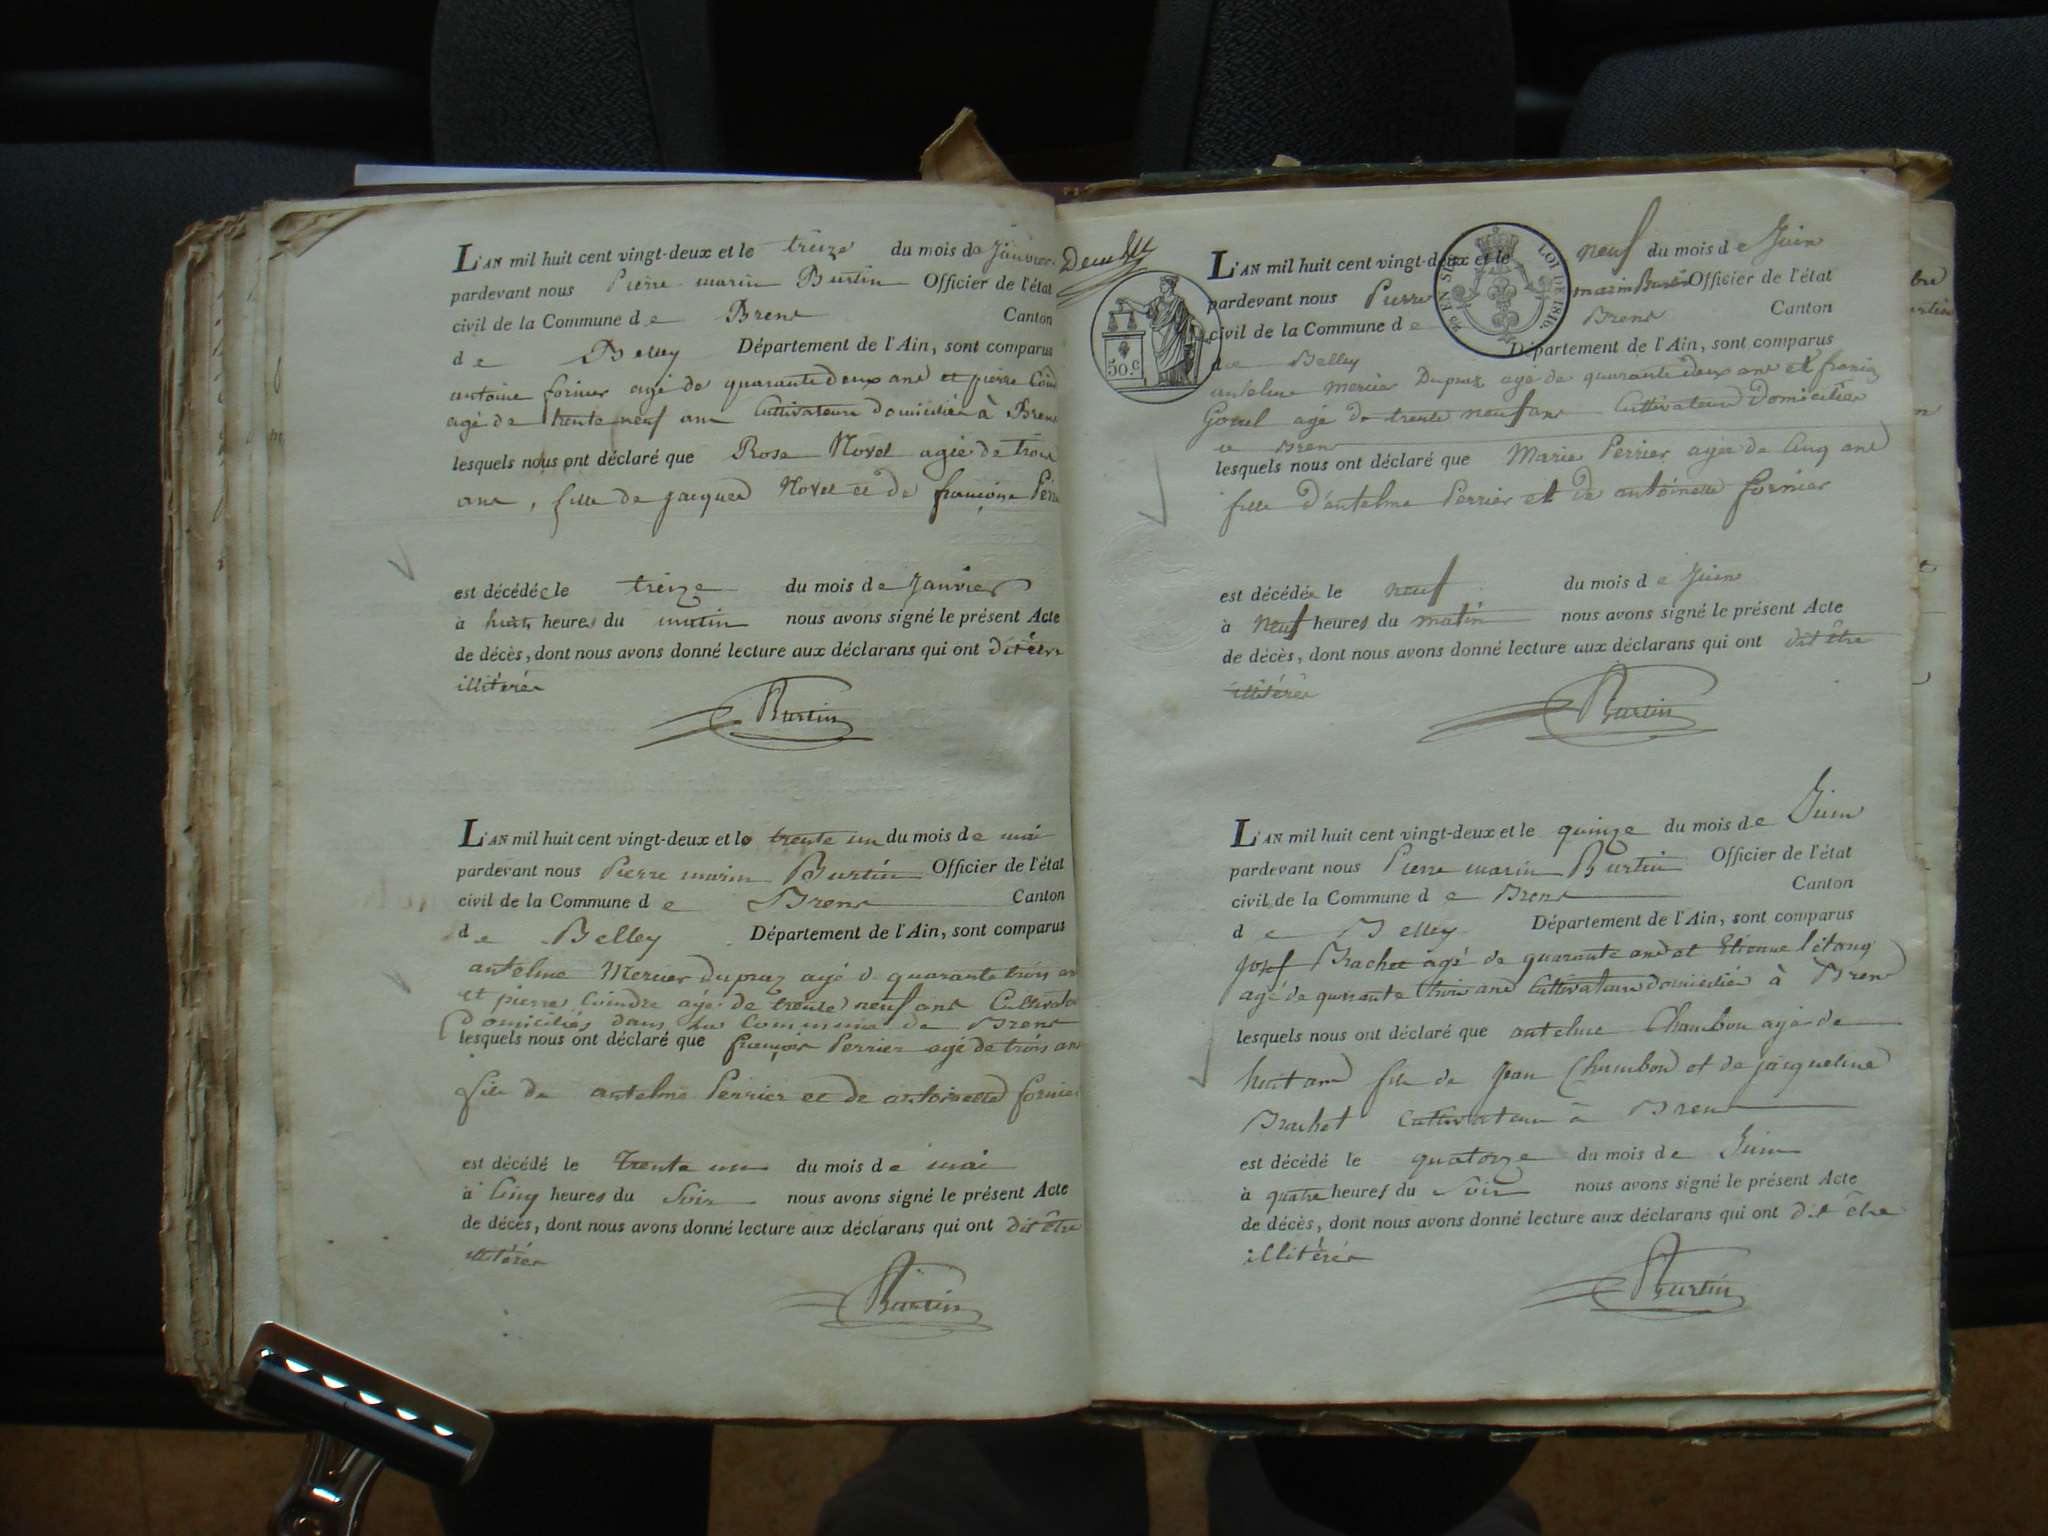 L'AN mil huit cent vingt-deux et le treize du mois de Janvier
pardevant nous Pierre marin Burtin Officier de l'état
civil de la Commune de Brens Canton
de Belley Département de l'Ain, sont comparus
antoine fornier agé de quarante deux ans et pierre
agé de trente neuf ans Cultivateurs domiciliés à Brens
lesquels nous ont déclaré que Rose Novel agée de trois
ans, fille de jacques Novel et de françoise
est décédée le treize du mois de Janvier
à huit heures du matin nous avons signé le présent Acte
de décès, dont nous avons donné lecture aux déclarans qui ont dit être
illitérés
Burtin
L'AN mil huit cent vingt-deux et le trente un du mois de mai
pardevant nous Pierre marin Burtin Officier de l'état
civil de la Commune de Brens Canton
de Belley Département de l'Ain, sont comparus
antelme Mercier dupraz agé d quarante trois ans
et pierre Coindre agé de trente neuf ans
Domiciliés dans la Commune de Brens
lesquels nous ont déclaré que françois Perrier agé de trois ans
fils de antelme Perrier et de antoinette fornier
est décédé le trente un du mois de mai
à Cinq heures du Soir nous avons signé le présent Acte
de décès, dont nous avons donné lecture aux déclarans qui ont dit être
illitérés
Burtin
50.c
EN SUS LOI DE 1816.
L'AN mil huit cent vingt-deux et le neuf du mois de Juin
pardevant nous Pierre marin Burtin Officier de l'état
civil de la Commune de Brens Canton
de Belley Département de l'Ain, sont comparus
antelme Mercier Dupraz agé de quarante deux ans et
agé de trente neuf ans Cultivateurs Domiciliés
à Brens
lesquels nous ont déclaré que Marie Perrier agée de Cinq ans
fille d'antelme Perrier et de antoinette fornier
est décédée le neuf du mois de Juin
à neuf heures du matin nous avons signé le présent Acte
de décès, dont nous avons donné lecture aux déclarans qui ont dit être
illitérés
Burtin
L'AN mil huit cent vingt-deux et le quinze du mois de Juin
pardevant nous Pierre marin Burtin Officier de l'état
civil de la Commune de Brens Canton
de Belley Département de l'Ain, sont comparus
Josef Brachet agé de quarante ans et Etienne létang
agé de quarante trois ans Cultivateurs domiciliés à Brens
lesquels nous ont déclaré que antelme Chambon agé de
huit ans fils de Jean Chambon et de jacqueline
Brachet Cultivateur à Brens
est décédé le quatorze du mois de Juin
à quatre heures du Soir nous avons signé le présent Acte
de décès, dont nous avons donné lecture aux déclarans qui ont dit être
illitérés
Burtin